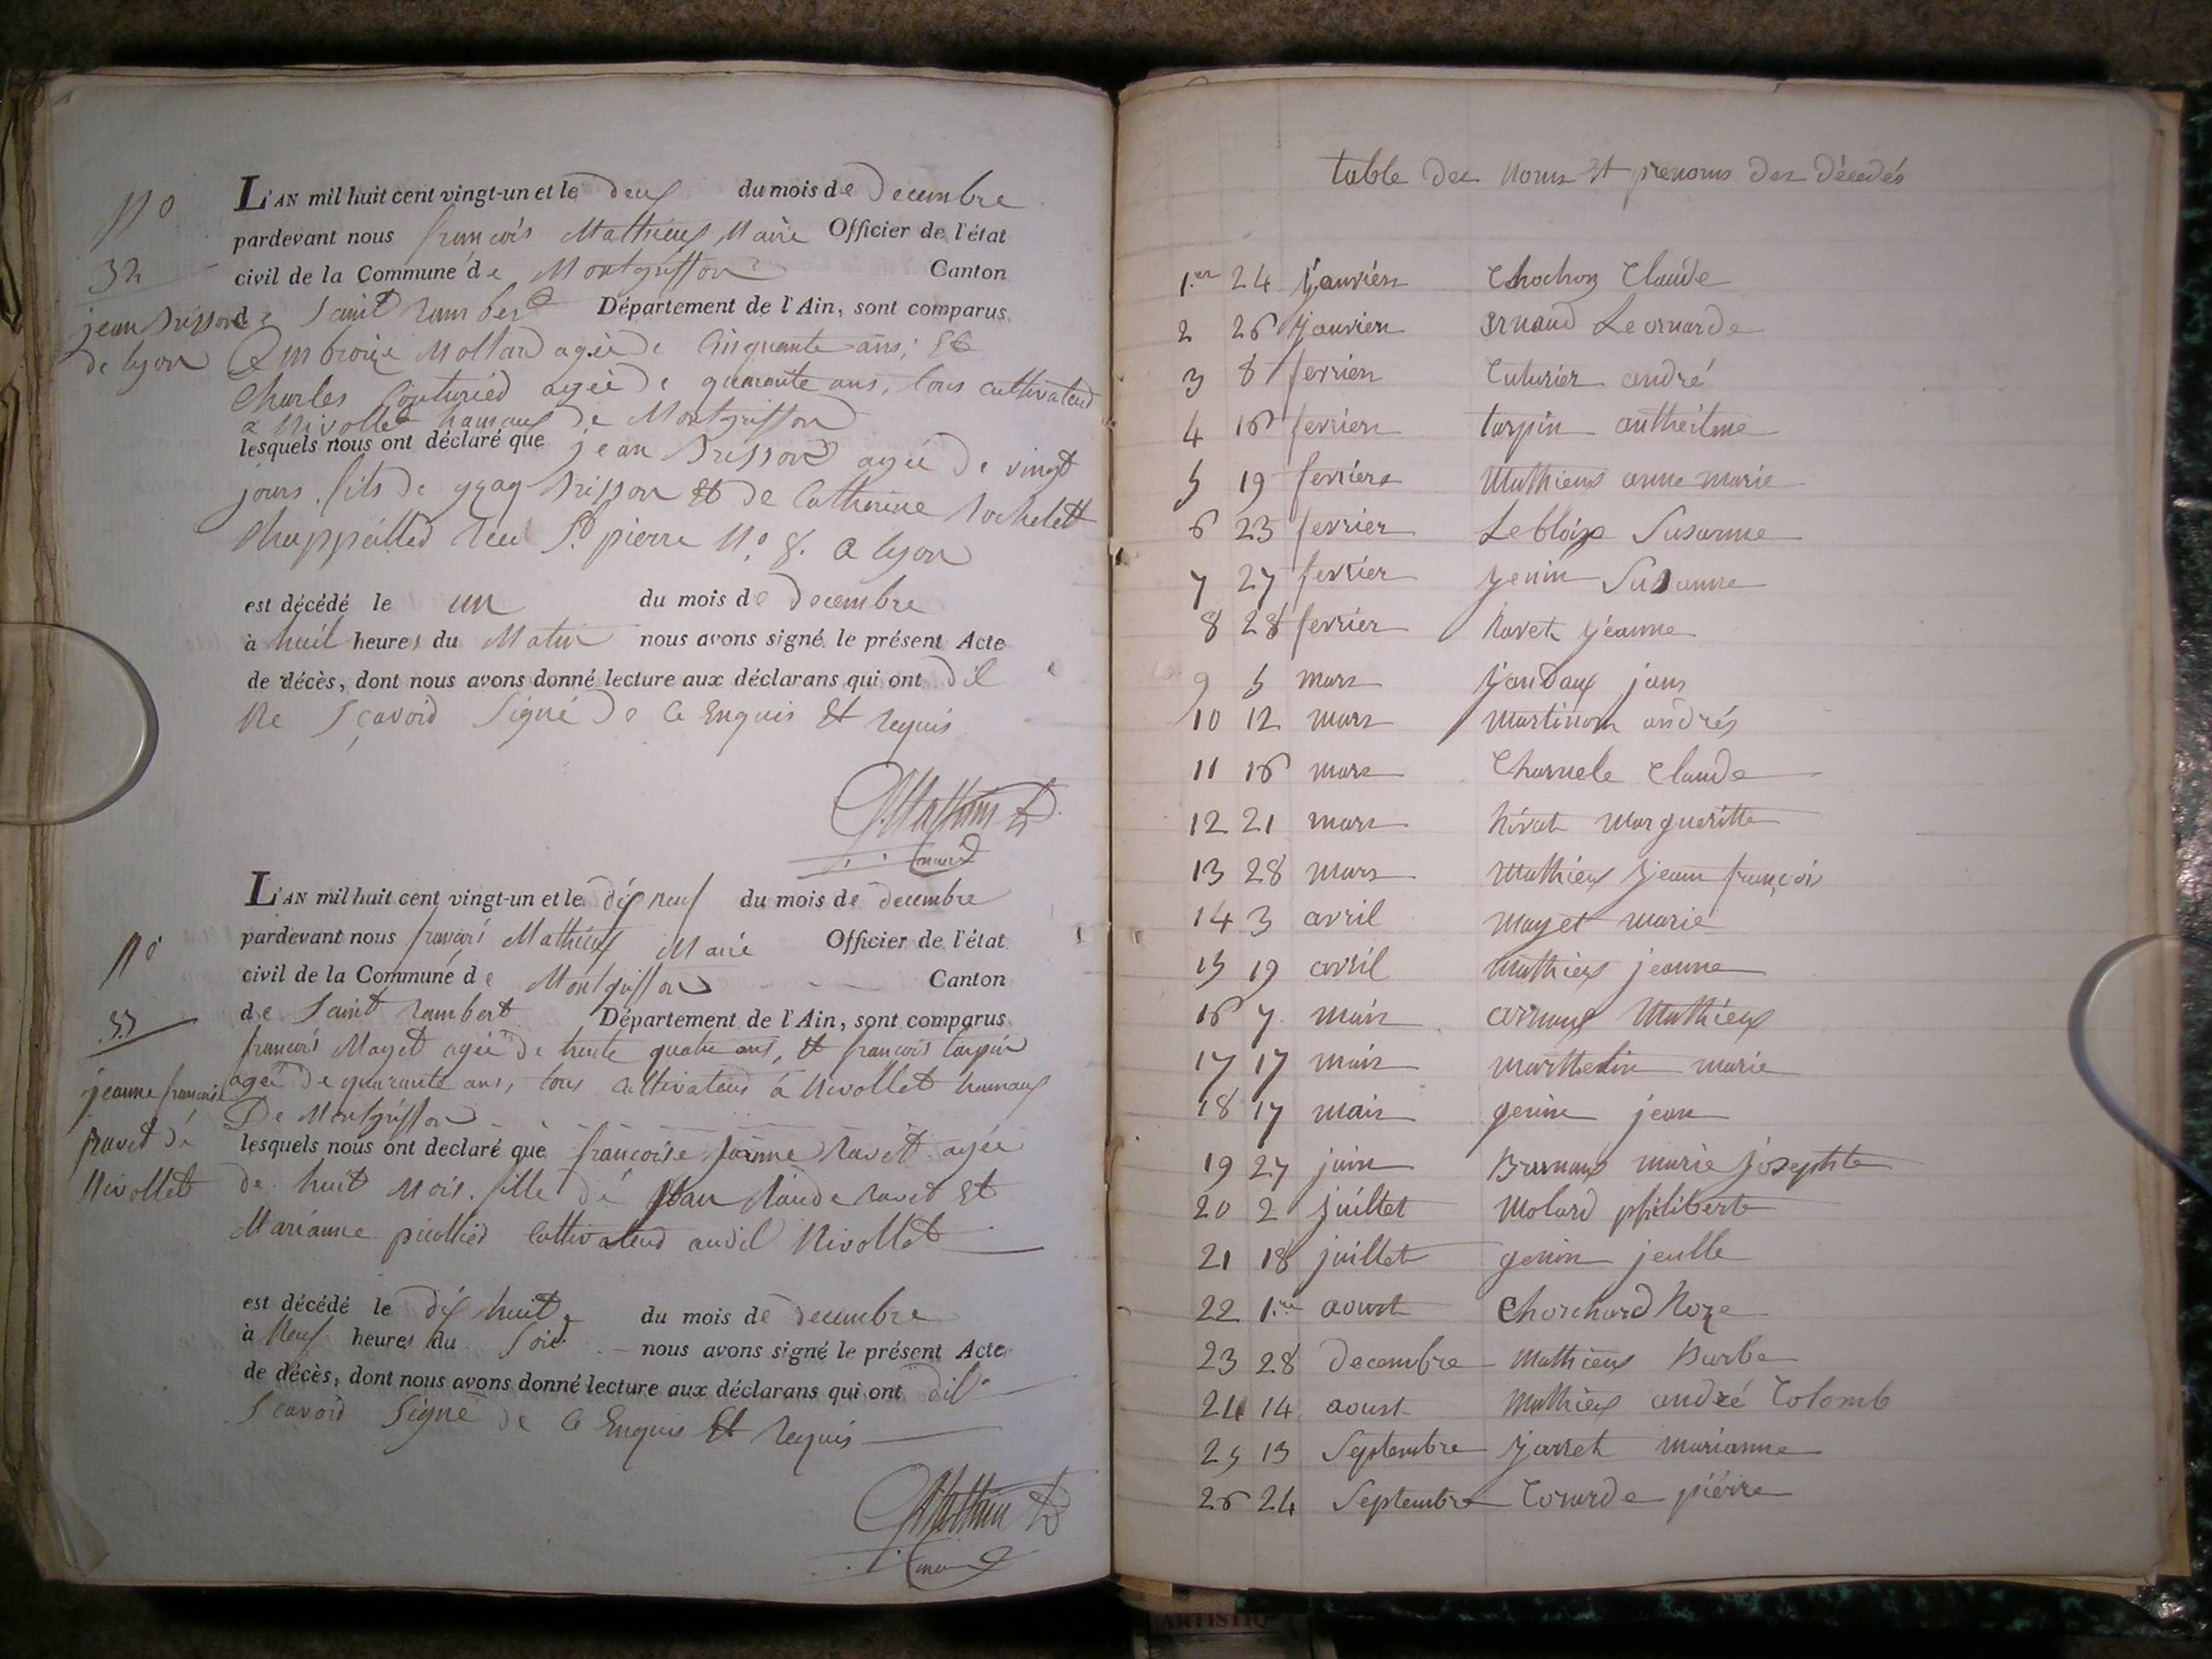 N°
32
jean Brisson
de lyon
L'AN mil huit cent vingt-un et le deux du mois de Decembre
pardevant nous françois Mathieux Maire Officier de l'état
civil de la Commune de Montgriffon Canton
de Saint Rambert Département de l'Ain, sont comparus
Ambroise Mollard agée de Cinquante ans, Et
Charles Couturier agée de quarante ans, tous cultivateur
a Nivollet hamaux de Montgriffon
lesquels nous ont déclaré que jean Brisson agée de vingt
jours, fils de Brisson Et de Catherine Rochelett
rue St pierre N° 8. a lyon
est décédé le un du mois de Decembre
à huit heures du Matin nous avons signé le présent Acte
de décès, dont nous avons donné lecture aux déclarans qui ont dit
Ne Sçavoir Signé de Ce Enquis Et Requis
Mathieux
maire
N°
33
jeanne françoise
Ravet de
Nivollet
L'AN mil huit cent vingt-un et le dix neuf du mois de decembre
pardevant nous françois Mathieux Maire Officier de l'état
civil de la Commune de Montgriffon Canton
de Saint Rambert Département de l'Ain, sont comparus
françois Mayet agée de trente quatre ans, Et françois tarpin
agée de quarante ans, tous cultivateurs à Nivollet hamaux
De Montgriffon
lesquels nous ont declaré que françoise jeanne Ravet agée
de huit Mois, fille de jean Claude Ravet Et
Marianne Cultivateur audit Nivollet
est décédé le dix huit du mois de decembre
à Neuf heures du Soir nous avons signé le présent Acte
de décès, dont nous avons donné lecture aux déclarans qui ont dit
Scavoir Signé de Ce Enquis Et Requis
Mathieux
maire
table des Noms Et prenoms des décedés
1.er 24 janvier Chochon Claude
2 26 janvier Arnaud Leonarde
3 8 fevrier Cuturier andré
4 16 fevrier tarpin antheilme
5 19 fevrier Mathieux anne marie
6 23 fevrier Lebloix Susanne
7 27 fevrier jenin Susanne
8 28 fevrier Ravet jéanne
9 5 mars jandaux jans
10 12 mars Martinon andrés
11 16 mars Charvele Claude
12 21 mars Nivat Margueritte
13 28 mars Mathieux jean françois
14 3 avril Mayet marie
15 19 avril Mathieux jeanne
16 7 mais arnaux Mathieux
17 17 mais Marthelin marie
18 17 mais genin jean
19 27 juin Burnaux marie josephte
20 2 juillet Molard philiberte
21 18 juillet genin jeulle
22 1.er aoust Chorchard Roze
23 28 Decembre Mathieux Barbe
24 14 aoust Mathieux andré Colomb
25 13 Septembre jarret marianne
26 24 Septembre Tourde piérre
ARTISTIQ